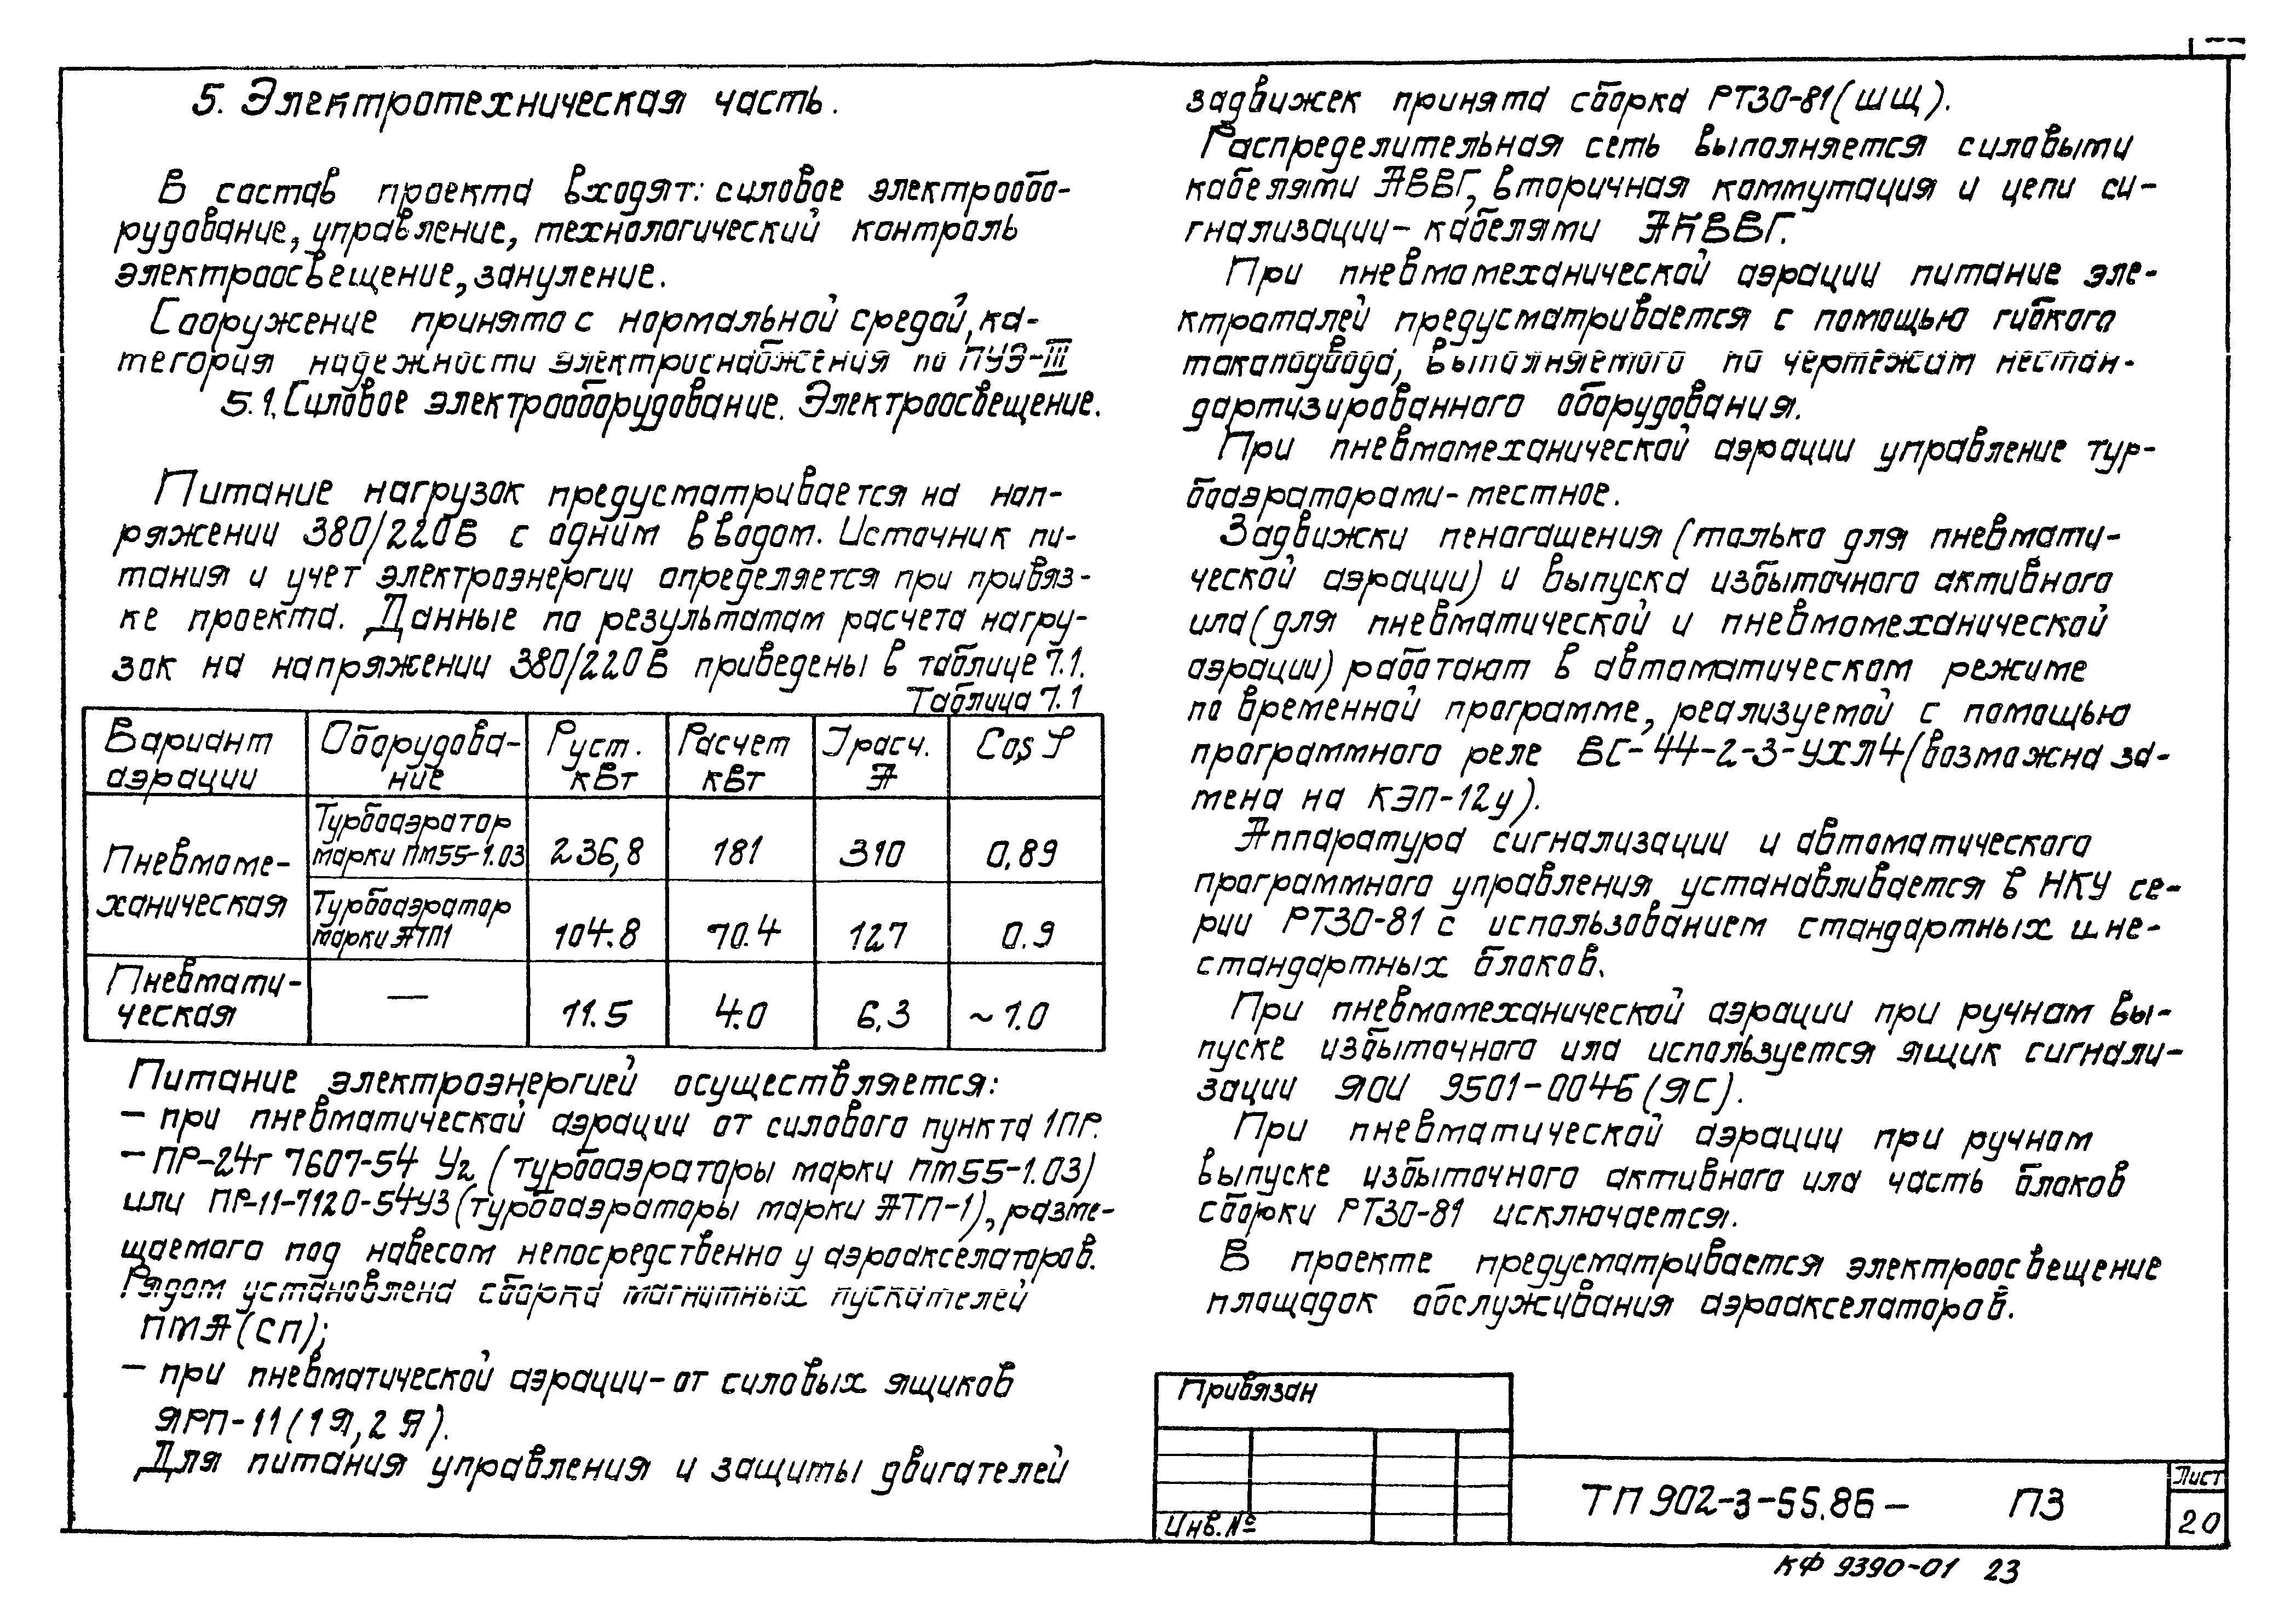 5. Электротехническая часть.
В состав проекта входят: силовое электрообо-
рудование, управление, технологический контроль
электроосвещение, зануление.
Сооружение принято с нормальной средой, ка-
тегория надежности электриснабжения по ПУЭ-III
5.1. Силовое электрооборудование. Электроосвещение.
Питание нагрузок предусматривается на нап-
ряжении 380/220В с одним вводом. Источник пи-
тания и учет электроэнергии определяется при привяз-
ке проекта. Данные по результатам расчета нагру-
зок на напряжении 380/220В приведены в таблице 7.1.
Таблица 7.1
Вариант аэрации | Оборудова-ние | Руст. кВт | Расчет кВт | Iрасч. А | Cos φ
Пневмоме-ханическая | Турбоаэратор марки ПМ55-1.03 | 236,8 | 181 | 310 | 0,89
Турбоаэратор марки АТП1 | 104.8 | 70.4 | 127 | 0.9
Пневмати-ческая | — | 11.5 | 4.0 | 6,3 | ~1.0
Питание электроэнергией осуществляется:
– при пневматической аэрации от силового пункта 1ПР.
– ПР-24г 7607-54 У2 (турбоаэраторы марки ПМ55-1.03)
или ПР-11-7120-54У3 (турбоаэраторы марки АТП-1), разме-
щаемого под навесом непосредственно у аэроакселаторов.
Рядом установлена сборка магнитных пускателей
ПМА (СП);
– при пневматической аэрации – от силовых ящиков
ЯРП-11 (1Я, 2Я).
Для питания управления и защиты двигателей
задвижек принята сборка РТ30-81 (ШЩ).
Распределительная сеть выполняется силовыми
кабелями АВВГ, вторичная коммутация и цепи си-
гнализации – кабелями АКВВГ.
При пневмомеханической аэрации питание эле-
ктроталей предусматривается с помощью гибкого
токоподвода, выполняемого по чертежам нестан-
дартизированного оборудования.
При пневмомеханической аэрации управление тур-
боаэраторами – местное.
Задвижки пеногашения (только для пневмати-
ческой аэрации) и выпуска избыточного активного
ила (для пневматической и пневмомеханической
аэрации) работают в автоматическом режиме
по временной программе, реализуемой с помощью
программного реле ВС-44-2-3-УХЛ4 (возможна за-
мена на КЭП-12у).
Аппаратура сигнализации и автоматического
программного управления устанавливается в НКУ се-
рии РТ30-81 с использованием стандартных и не-
стандартных блоков.
При пневмомеханической аэрации при ручном вы-
пуске избыточного ила используется ящик сигнали-
зации ЯОИ 9501-004Б (ЯС).
При пневматической аэрации при ручном
выпуске избыточного активного ила часть блоков
сборки РТ30-81 исключается.
В проекте предусматривается электроосвещение
площадок обслуживания аэроакселаторов.
Привязан
Инв.№
ТП 902-3-55.86 – ПЗ
Лист
20
КФ 9390-01 23